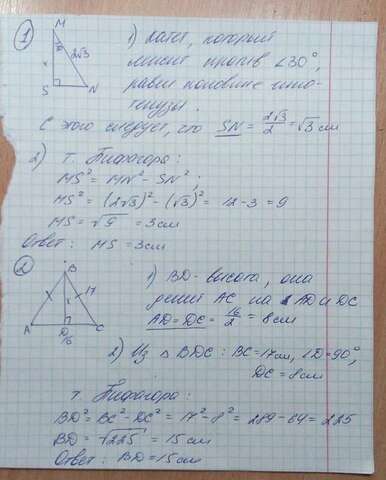 ① M
30°
2√3
x
S N
1) Катет, который
лежит против ∠30°,
равен половине гипо-
тенузы.
С этого следует, что SN = 2√3/2 = √3 см
2) т. Пифагора:
MS² = MN² - SN²;
MS² = (2√3)² - (√3)² = 12 - 3 = 9
MS = √9 = 3 см
Ответ: MS = 3 см
② B
17
A D C
16
1) BD - высота, она
делит AC на AD и DC
AD = DC = 16/2 = 8 см
2) Из △ BDC: BC = 17 см, ∠D = 90°,
DC = 8 см
т. Пифагора:
BD² = BC² - DC² = 17² - 8² = 289 - 64 = 225
BD = √225 = 15 см
Ответ: BD = 15 см